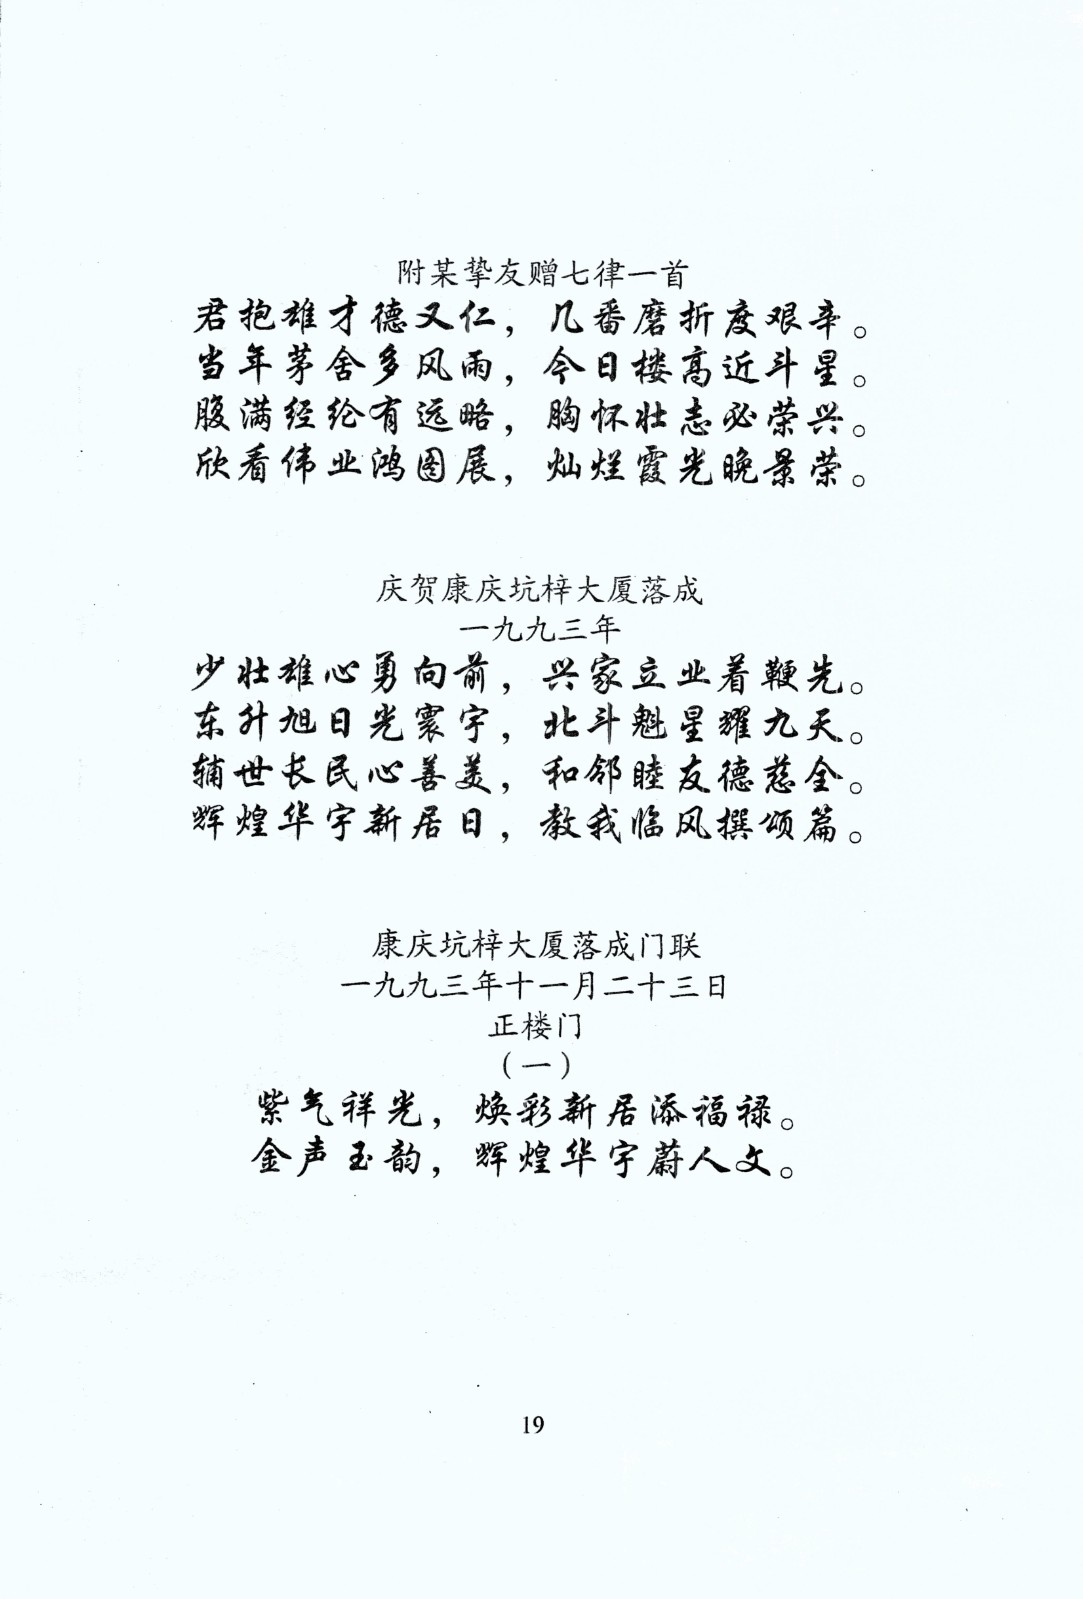 附某挚友赠七律一首
君抱雄才德又仁，几番磨折度艰辛。
当年茅舍多风雨，今日楼高近斗星。
腹满经纶有远略，胸怀壮志必荣兴。
欣看伟业鸿图展，灿烂霞光晚景荣。
庆贺康庆坑梓大厦落成
一九九三年
少壮雄心勇向前，兴家立业着鞭先。
东升旭日光寰宇，北斗魁星耀九天。
辅世长民心善美，和邻睦友德慈全。
辉煌华宇新居日，教我临风撰颂篇。
康庆坑梓大厦落成门联
一九九三年十一月二十三日
正楼门
（一）
紫气祥光，焕彩新居添福禄。
金声玉韵，辉煌华宇蔚人文。
19